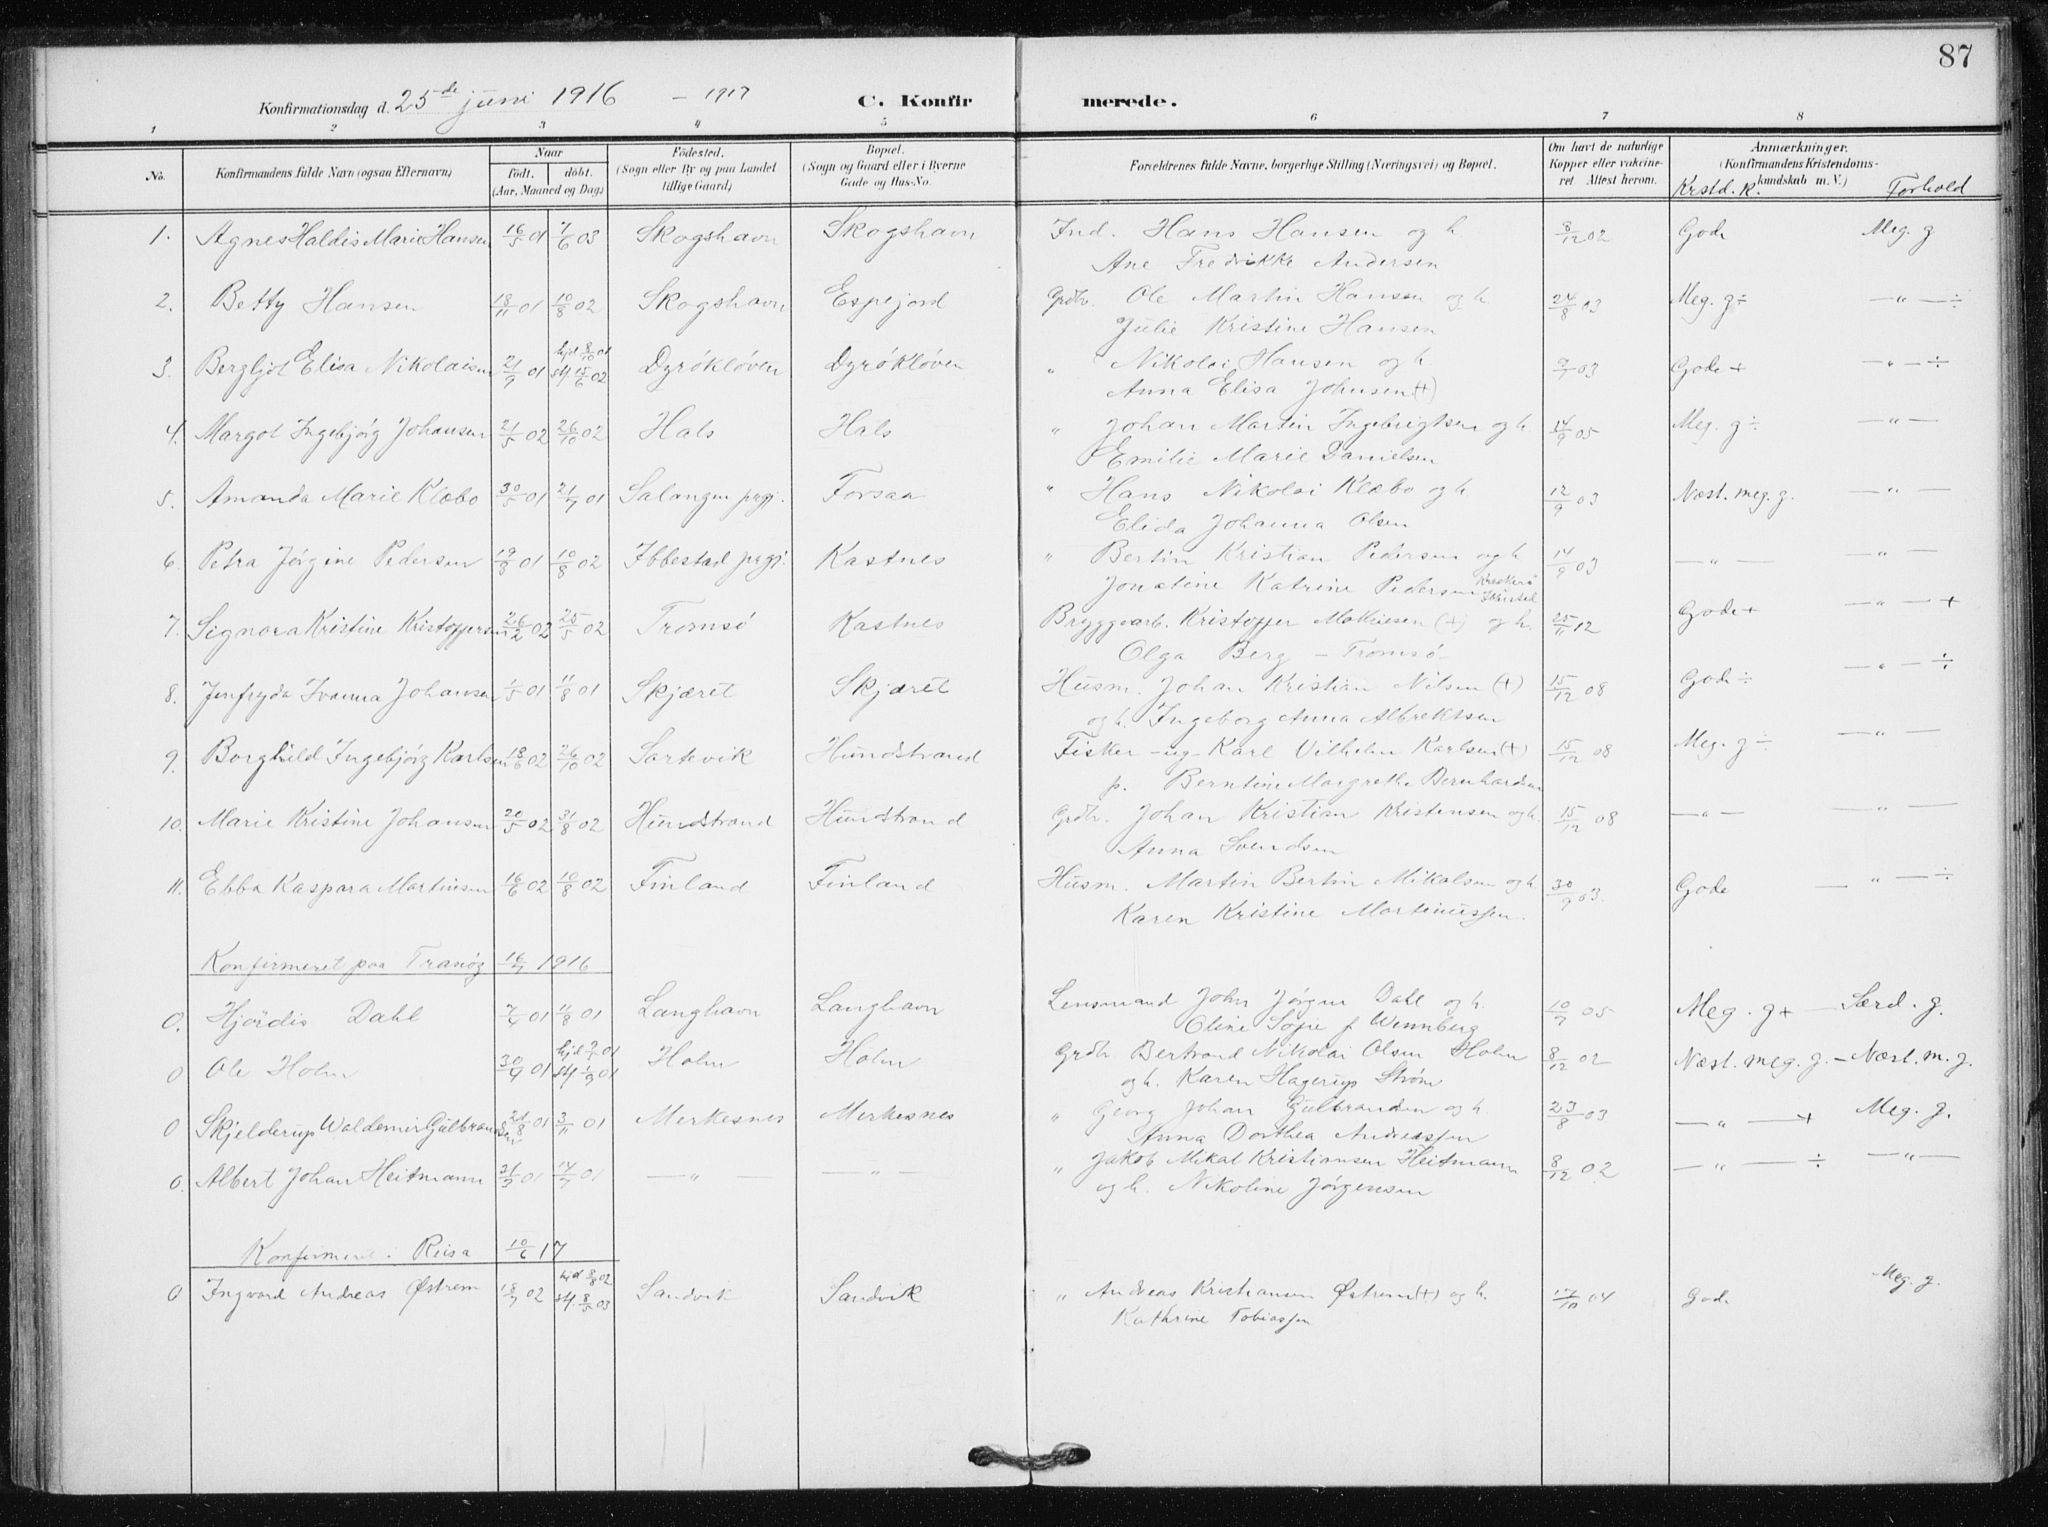 87
Konfirmationsdag d. 25de juni 1916 - 1917 C. Konfirmerede.
1 2 3 4 5 6 7 8
No. Konfirmandens fulde Navn (ogsaa Efternavn) Naar født. døbt. (Aar, Maaned og Dag) Fødested. (Sogn eller By og paa Landet tillige Gaard) Bopæl. (Sogn og Gaard eller i Byerne Gade og Hus-No. Forældrenes fulde Navne, borgerlige Stilling (Næringsvei) og Bopæl. Om havt de naturlige Kopper eller vakcineret. Attest herom. Anmærkninger. (Konfirmandens Kristendomskundskab m. V.) Krstd. k. Forhold
1. Agnes Haldis Marie Hansen 16/5 01 7/6 03 Skogshavn Skogshavn Ind. Hans Hansen og h. 8/12 02 Gode Meg. g
Ane Fredrikke Andersen
2. Betty Hansen 18/11 01 10/8 02 Skogshavn Espejord Grdbr. Ole Martin Hansen og h. 24/8 03 Meg. g÷ — " — ÷
Julie Kristine Hansen
3. Bergljot Elisa Nikolaisen 21/9 01 hjd 8/10 01 st. 15/6 02 Dyrökløven Dyrökløven " Nikolai Hansen og h. 9/7 03 Gode + — " — ÷
Anna Elisa Johnsen (+)
4. Margot Ingebjørg Johansen 21/5 02 26/10 02 Hals Hals " Johan Martin Ingebrigtsen og h. 14/9 05 Meg. g÷ — " —
Emilie Marie Danielsen
5. Amanda Marie Klæbo 30/5 01 21/7 01 Salangen prgj. Forsaa " Hans Nikolai Klæbo og h 12/9 03 Næst. meg. g. — " —
Elida Johanna Olsen
6. Petra Jørgine Pedersen 19/8 01 10/8 02 Ibbestad prgj. Kastnes " Bertin Kristian Pedersen og h 14/9 03 — " — — " —
Jonetine Katrine Pedersen
7. Signora Kristine Kristoffersen 26/2 02 25/5 02 Tromsö Kastnes Bryggearb. Kristoffer Mathiesen (+) og h. 25/11 12 Gode + — " — +
Olga Berg — Tromsö
8. Jenfryda Ivanna Johansen 1/5 01 11/8 01 Skjæret Skjæret Husm. Johan Kristian Nilsen (+) 15/12 08 Gode ÷ — " — ÷
og h. Ingeborg Anna Albrektsen
9. Borghild Ingebjørg Karlsen 18/6 02 26/10 02 Sørtevik Hundstrand Fisker - ug - Karl Vilhelm Karlsen (+) 15/12 08 Meg. g ÷ — " —
p. Berntine Margrethe Bernhardsen
10. Marie Kristine Johansen 20/5 02 31/8 02 Hundstrand Hundstrand Grdbr. Johan Kristian Kristensen og h. 15/12 08 — " — — " —
Anna Svendsen
11. Ebba Kaspara Martinsen 16/6 02 10/8 02 Finland Finland Husm. Martin Bertin Mikalsen og h. 30/9 03. Gode — " — ÷
Karen Kristine Martinussen.
Konfirmeret paa Tranöy 16/7 1916
0. Hjördis Dahl 7/4 01 11/8 01 Langhavn Langhavn Lensmand John Jörgen Dahl og h. 10/9 05 Meg. g+ — Særd. g.
Oline Sofie f Wennberg
0 Ole Holm 30/4 01 hjd 01 st. 1/9 01 Holm Holm Grdbr. Bertrand Nikolai Olsen Holm 8/12 02 Næst. meg. g. — Næst. m. g.
og h. Karen Hagerup Strøm
0 Skjelderup Waldemir Gulbrandsen 21/8 01 3/11 01 Merkesnes Merkesnes " Georg Johan Gulbrandsen og h. 23/8 03 — " — + Meg. g.
Anna Dorthea Andreassen
0. Albert Johan Heitmann 21/3 01 14/7 01 — " — — " — " Jakob Mikal Kristiansen Heitmann 8/12 02 — " — ÷ — " —
og h. Nikoline Jørgensen
Konfirmeret i Reisa 10/6 17
0 Ingvard Andreas Østrem 18/7 02 hjd 3/8 02 st. 8/5 03 Sandvik Sandvik " Andreas Kristiansen Østrem (+) og h. 17/10 04 Gode Meg. g.
Kathrine Tobiassen